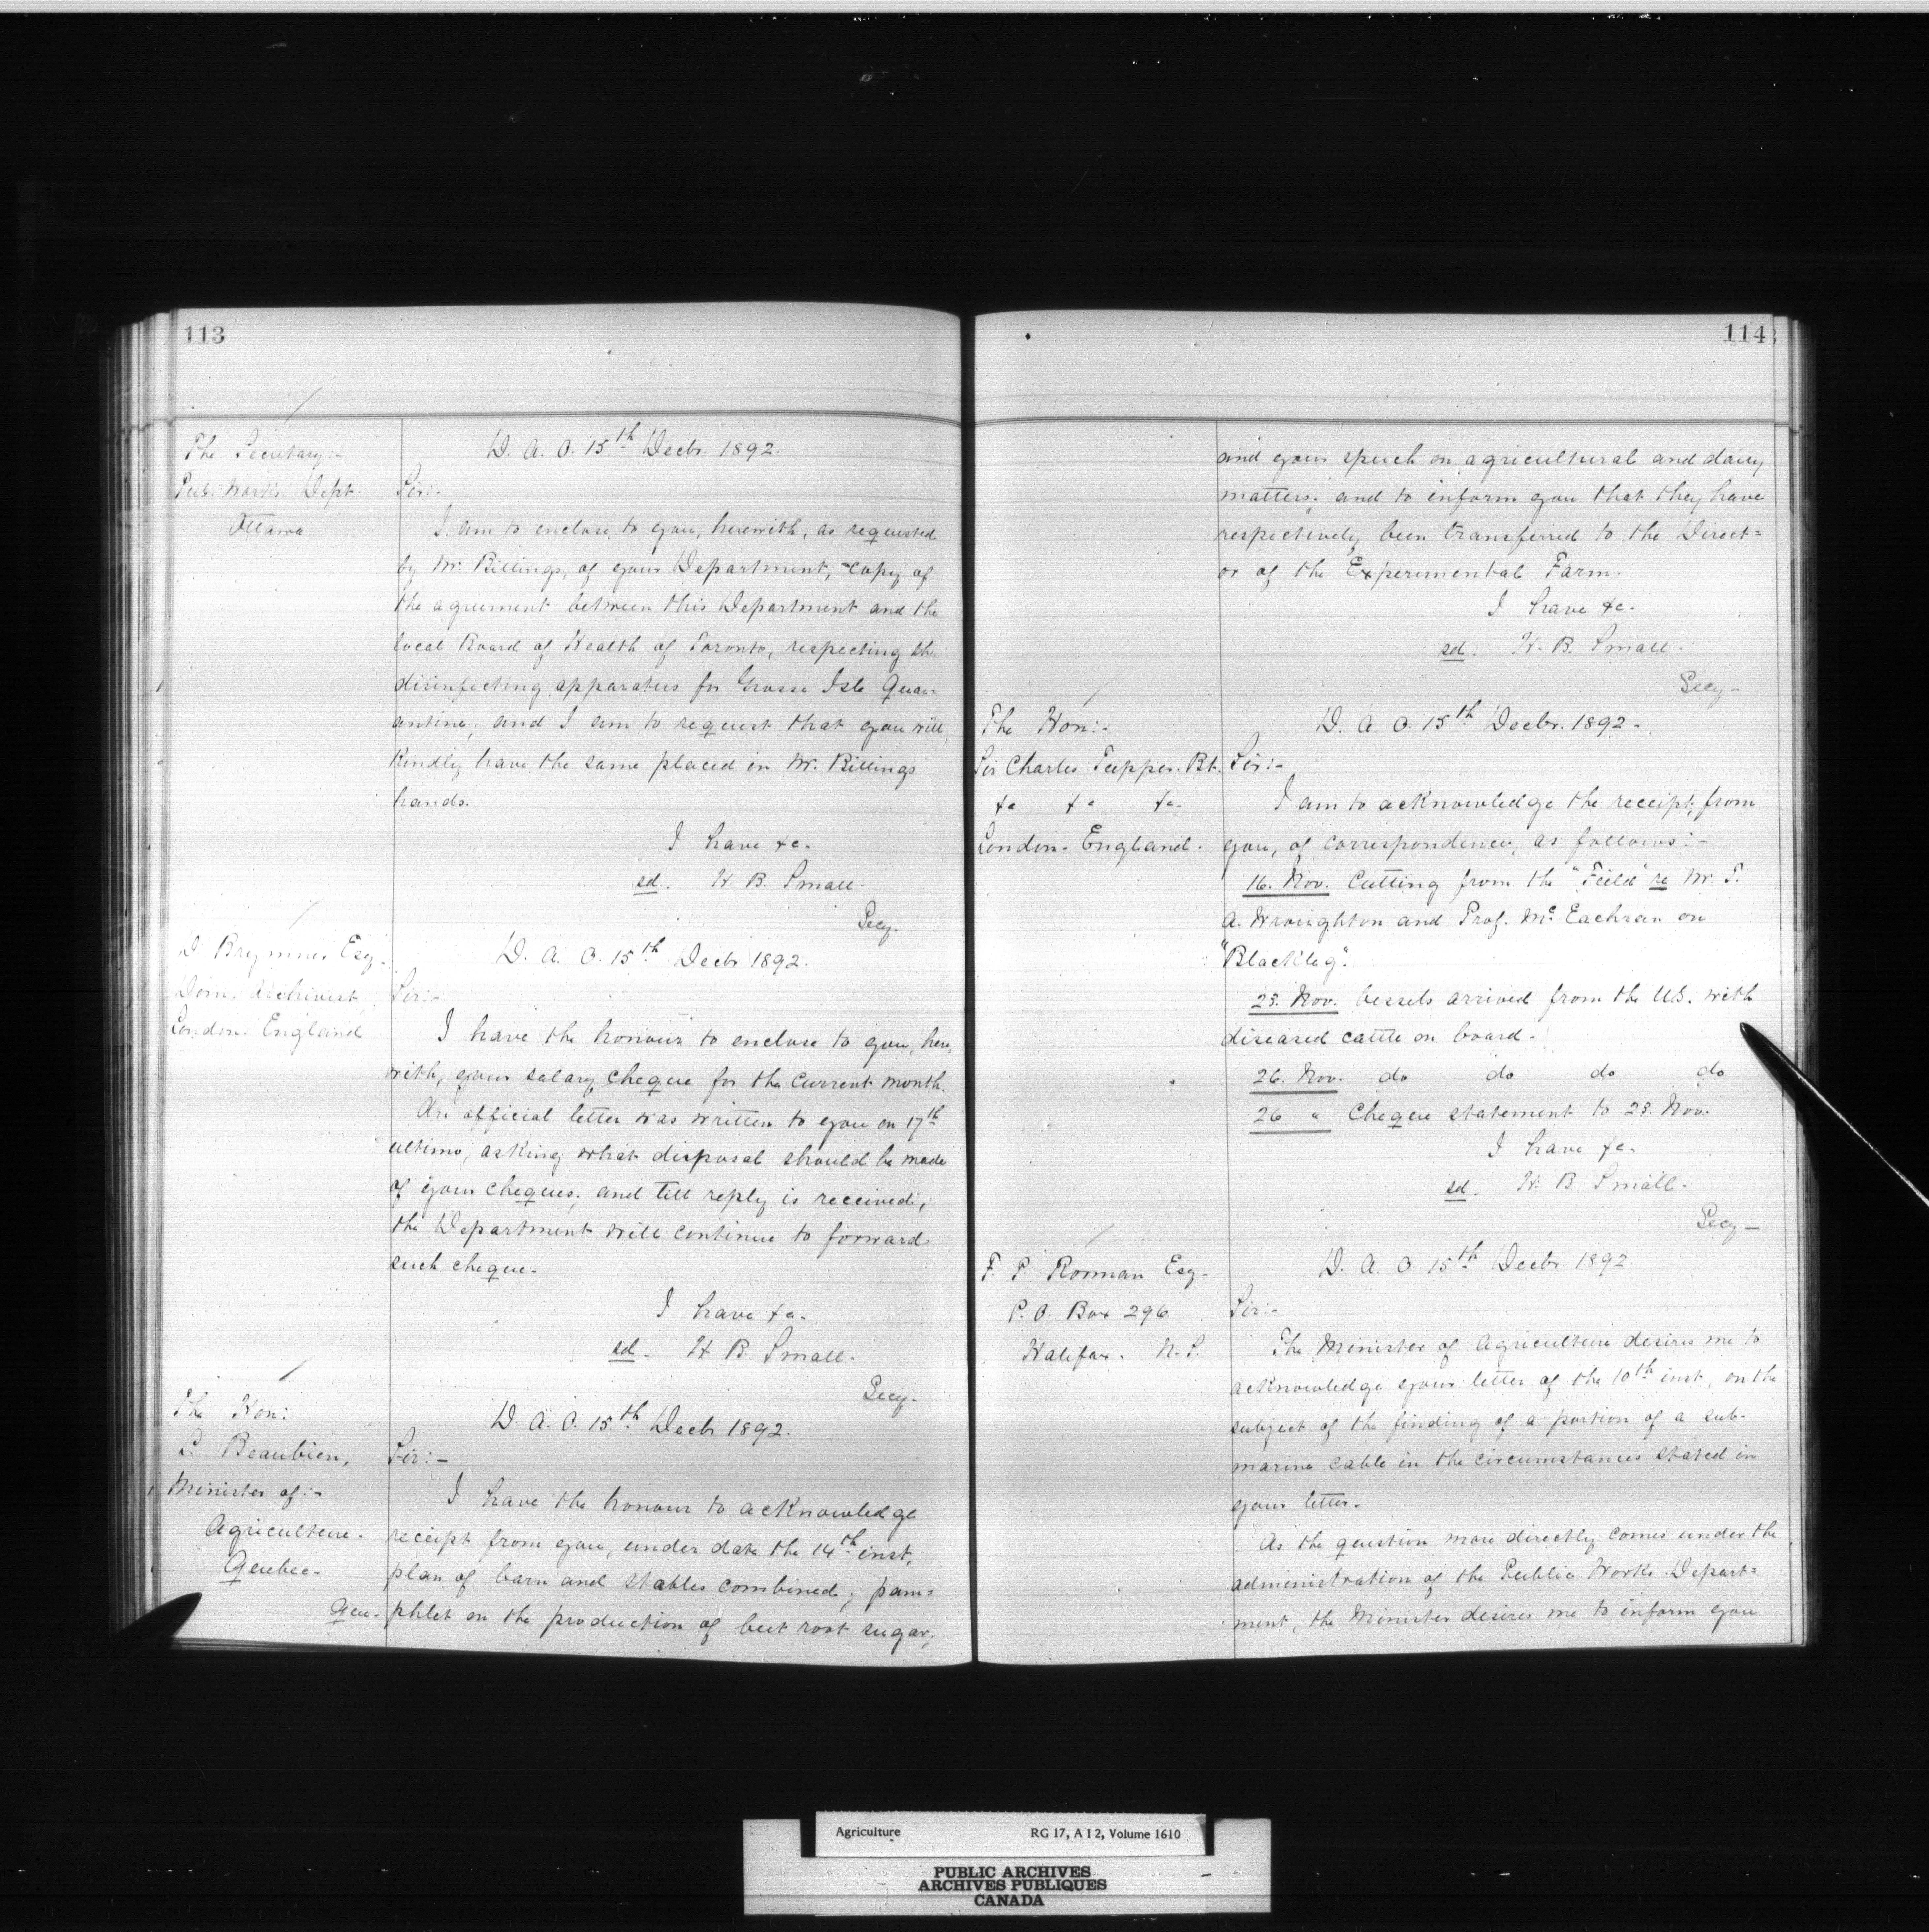 113
The Secretary:-
Pub. Works Dept.
Ottawa
D. A. O. 15th Decbr. 1892.
Sir:-
I am to enclose to you, herewith, as requested
by Mr. Billings, of your Department, copy of
the agreement between this Department and the
local Board of Health of Toronto, respecting the
disinfecting apparatus for Grosse Isle Quar=
antine, and I am to request that you will
kindly have the same placed in Mr. Billings
hands.
I have &c.
sd. H. B. Small.
Secy.
D Brymner Esq.
Dom. Archivist
London. England
D. A. O. 15th Decbr 1892.
Sir:-
I have the honour to enclose to you, here=
with, your salary cheque for the current month.
An official letter was written to you on 17th
ultimo, asking what disposal should be made
of your cheques, and till reply is received,
the Department will continue to forward
such cheque.
I have &c.
sd. H B. Small.
Secy.
The Hon:
L. Beaubien,
Minister of:-
Agriculture.
Quebec.
Que.
D. A. O. 15th Decbr 1892.
Sir:-
I have the honour to acknowledge
receipt from you, under date the 14th inst,
plan of barn and stables combined; pam=
phlet on the production of beet root sugar;
114
and your speech on agricultural and dairy
matters; and to inform you that they have
respectively been transferred to the Direct=
or of the Experimental Farm.
I have &c.
sd. H. B. Small.
Secy-
The Hon:-
Sir Charles Tupper. Bt.
&c &c &c.
London. England.
D. A. O. 15th Decbr. 1892.
Sir:-
I am to acknowledge the receipt, from
you, of correspondence, as follows:-
16. Nov. Cutting from the "Field" re Mr. T.
A. Wroughton and Prof. McEachran on
"Blackleg".
23. Nov. Vessels arrived from the U.S. with
diseased cattle on board.
26. Nov. do do do do
26 " Cheque statement to 23. Nov.
I have &c.
sd. H. B Small.
Secy-
F. P. Ronnan Esq.
P. O. Box 296.
Halifax. N. S.
D. A. O 15th Decbr. 1892.
Sir:-
The Minister of Agriculture desires me to
acknowledge your letter of the 10th inst, on the
subject of the finding of a portion of a sub-
marine cable in the circumstances stated in
your letter.
As the question more directly comes under the
administration of the Public Works Depart=
ment, the Minister desires me to inform you
Agriculture RG 17, A I 2, Volume 1610
PUBLIC ARCHIVES
ARCHIVES PUBLIQUES
CANADA